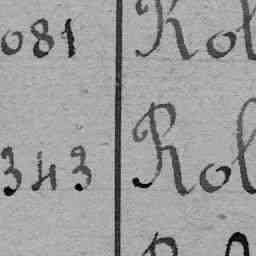 081 Rol
343 Rol